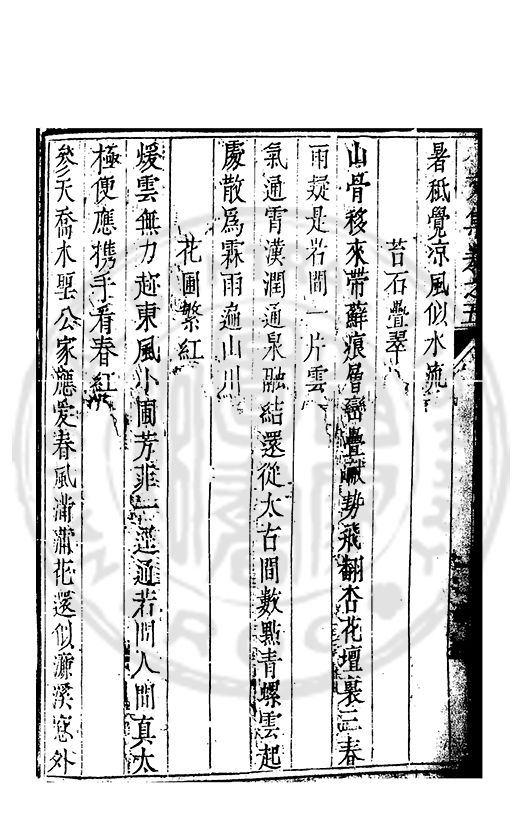 暑秪覺凉風似水流
苔石疊翠
山骨移來帶蘚痕層巒疊巘勢飛翻杏花壇裏三春
雨疑是岩間一片雲
氣通霄漢潤通泉融結還從太古間數點青螺雲起
處散爲霖雨遍山川
花圃繁紅
煖雲無力趂東風小圃芳菲一逕通若問人間真太
極便應携手看春紅
參天喬木聖公家應愛春風滿蒲花還似濂溪窓外